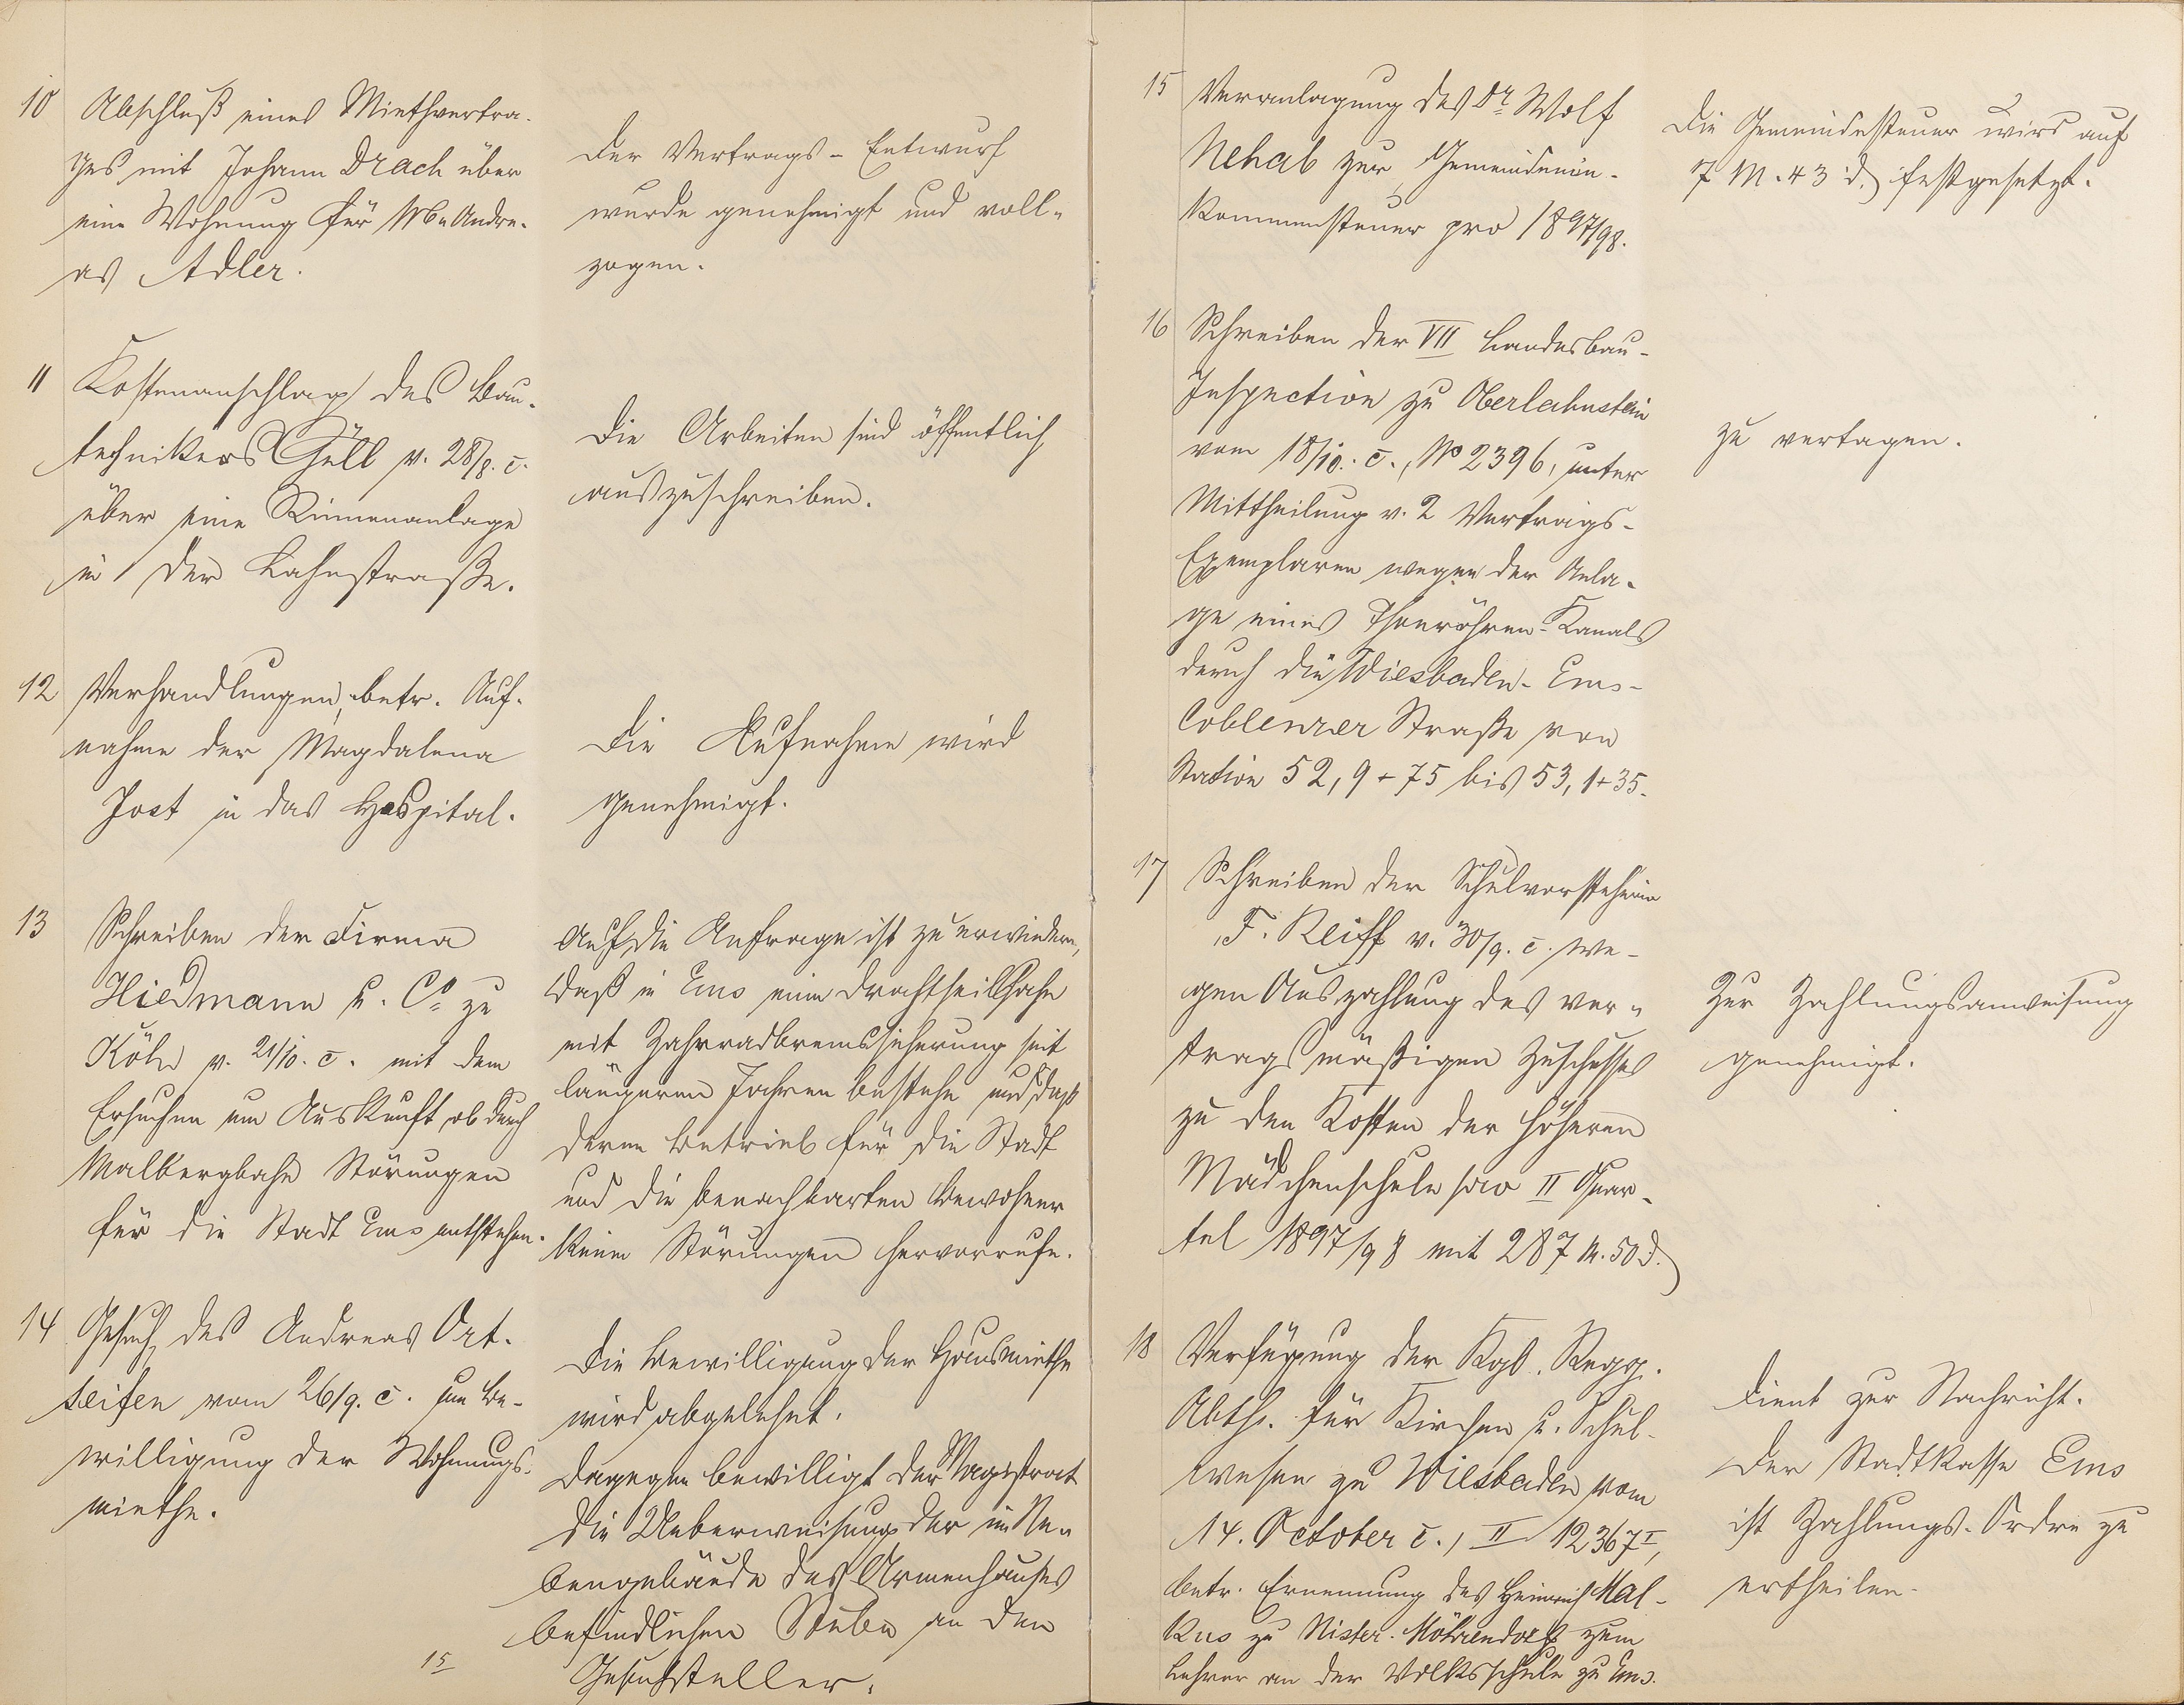 10 Abschluß eines Miethvertra-
ges mit Johann Drach über
eine Wohnung für Ww. Andre-
as Adler.
Der Vertrags-Entwurf
wurde genehmigt und voll-
zogen.
11 Kostenanschlag des Bau-
technikers Güll v. 28/8. c.
über eine Rinnenanlage
in der Lahnstraße.
Die Arbeiten sind öffentlich
auszuschreiben.
12 Verhandlungen, betr. Auf-
nahme der Magdalena
Jost in das Hospital.
Die Aufnahme wird
genehmigt.
13 Schreiben der Firma
Hiedmann u. Co zu
Köln v. 21/10. c. mit dem
Ersuchen um Auskunft, ob durch
Malbergbahn Störungen
für die Stadt Ems entstehen.
Auf die Anfrage ist zu erwiedern,
daß in Ems eine Drahtseilbahn
mit Zahnradbremssicherung seit
längeren Jahren bestehe und daß
deren Betrieb für die Stadt
und die benachbarten Bewohner
keine Störungen hervorrufe.
14 Gesuch des Andreas Ort-
seifen vom 26/9. c. um Be-
willigung der Wohnungs-
miethe.
Die Bewilligung der Hausmiethe
wird abgelehnt.
Dagegen bewilligt der Magistrat
die Ueberweisung der im Ne-
bengebäude des Armenhauses
befindlichen Stube an den
Gesuchsteller.
15
15 Veranlagung des Dr Wolf
Nehab zur Gemeindeein-
kommensteuer pro 1897/98.
Die Gemeindesteuer wird auf
7 M. 43 d. festgesetzt.
16 Schreiben der VII Landesbau-
Inspection zu Oberlahnstein
vom 18/10. c., No 2396, unter
Mittheilung v. 2 Vertrags-
Exemplaren wegen der Anla-
ge eines Thonröhren-Kanals
durch die Wiesbaden-Ems-
Coblenzer Straße von
Station 52,9 + 75 bis 53,1 + 35.
Zu vertagen.
17 Schreiben der Schulvorsteherin
F. Reiff v. 30/9. c. we-
gen Auszahlung des ver-
tragsmäßigen Zuschusses
zu den Kosten der höheren
Mädchenschule pro II Quar-
tal 1897/98 mit 287 M. 50 d.
Zur Zahlungsanweisung
genehmigt.
18 Verfügung der Kgl. Regg.
Abth. für Kirchen u. Schul-
wesen zu Wiesbaden vom
14. October c., II 12367 I,
betr. Ernennung des Heinrich Mal-
kus zu Nister-Möhrendorf zum
Lehrer an der Volksschule zu Ems.
Dient zur Nachricht.
Der Stadtkasse Ems
ist Zahlungs-Ordre zu
ertheilen.